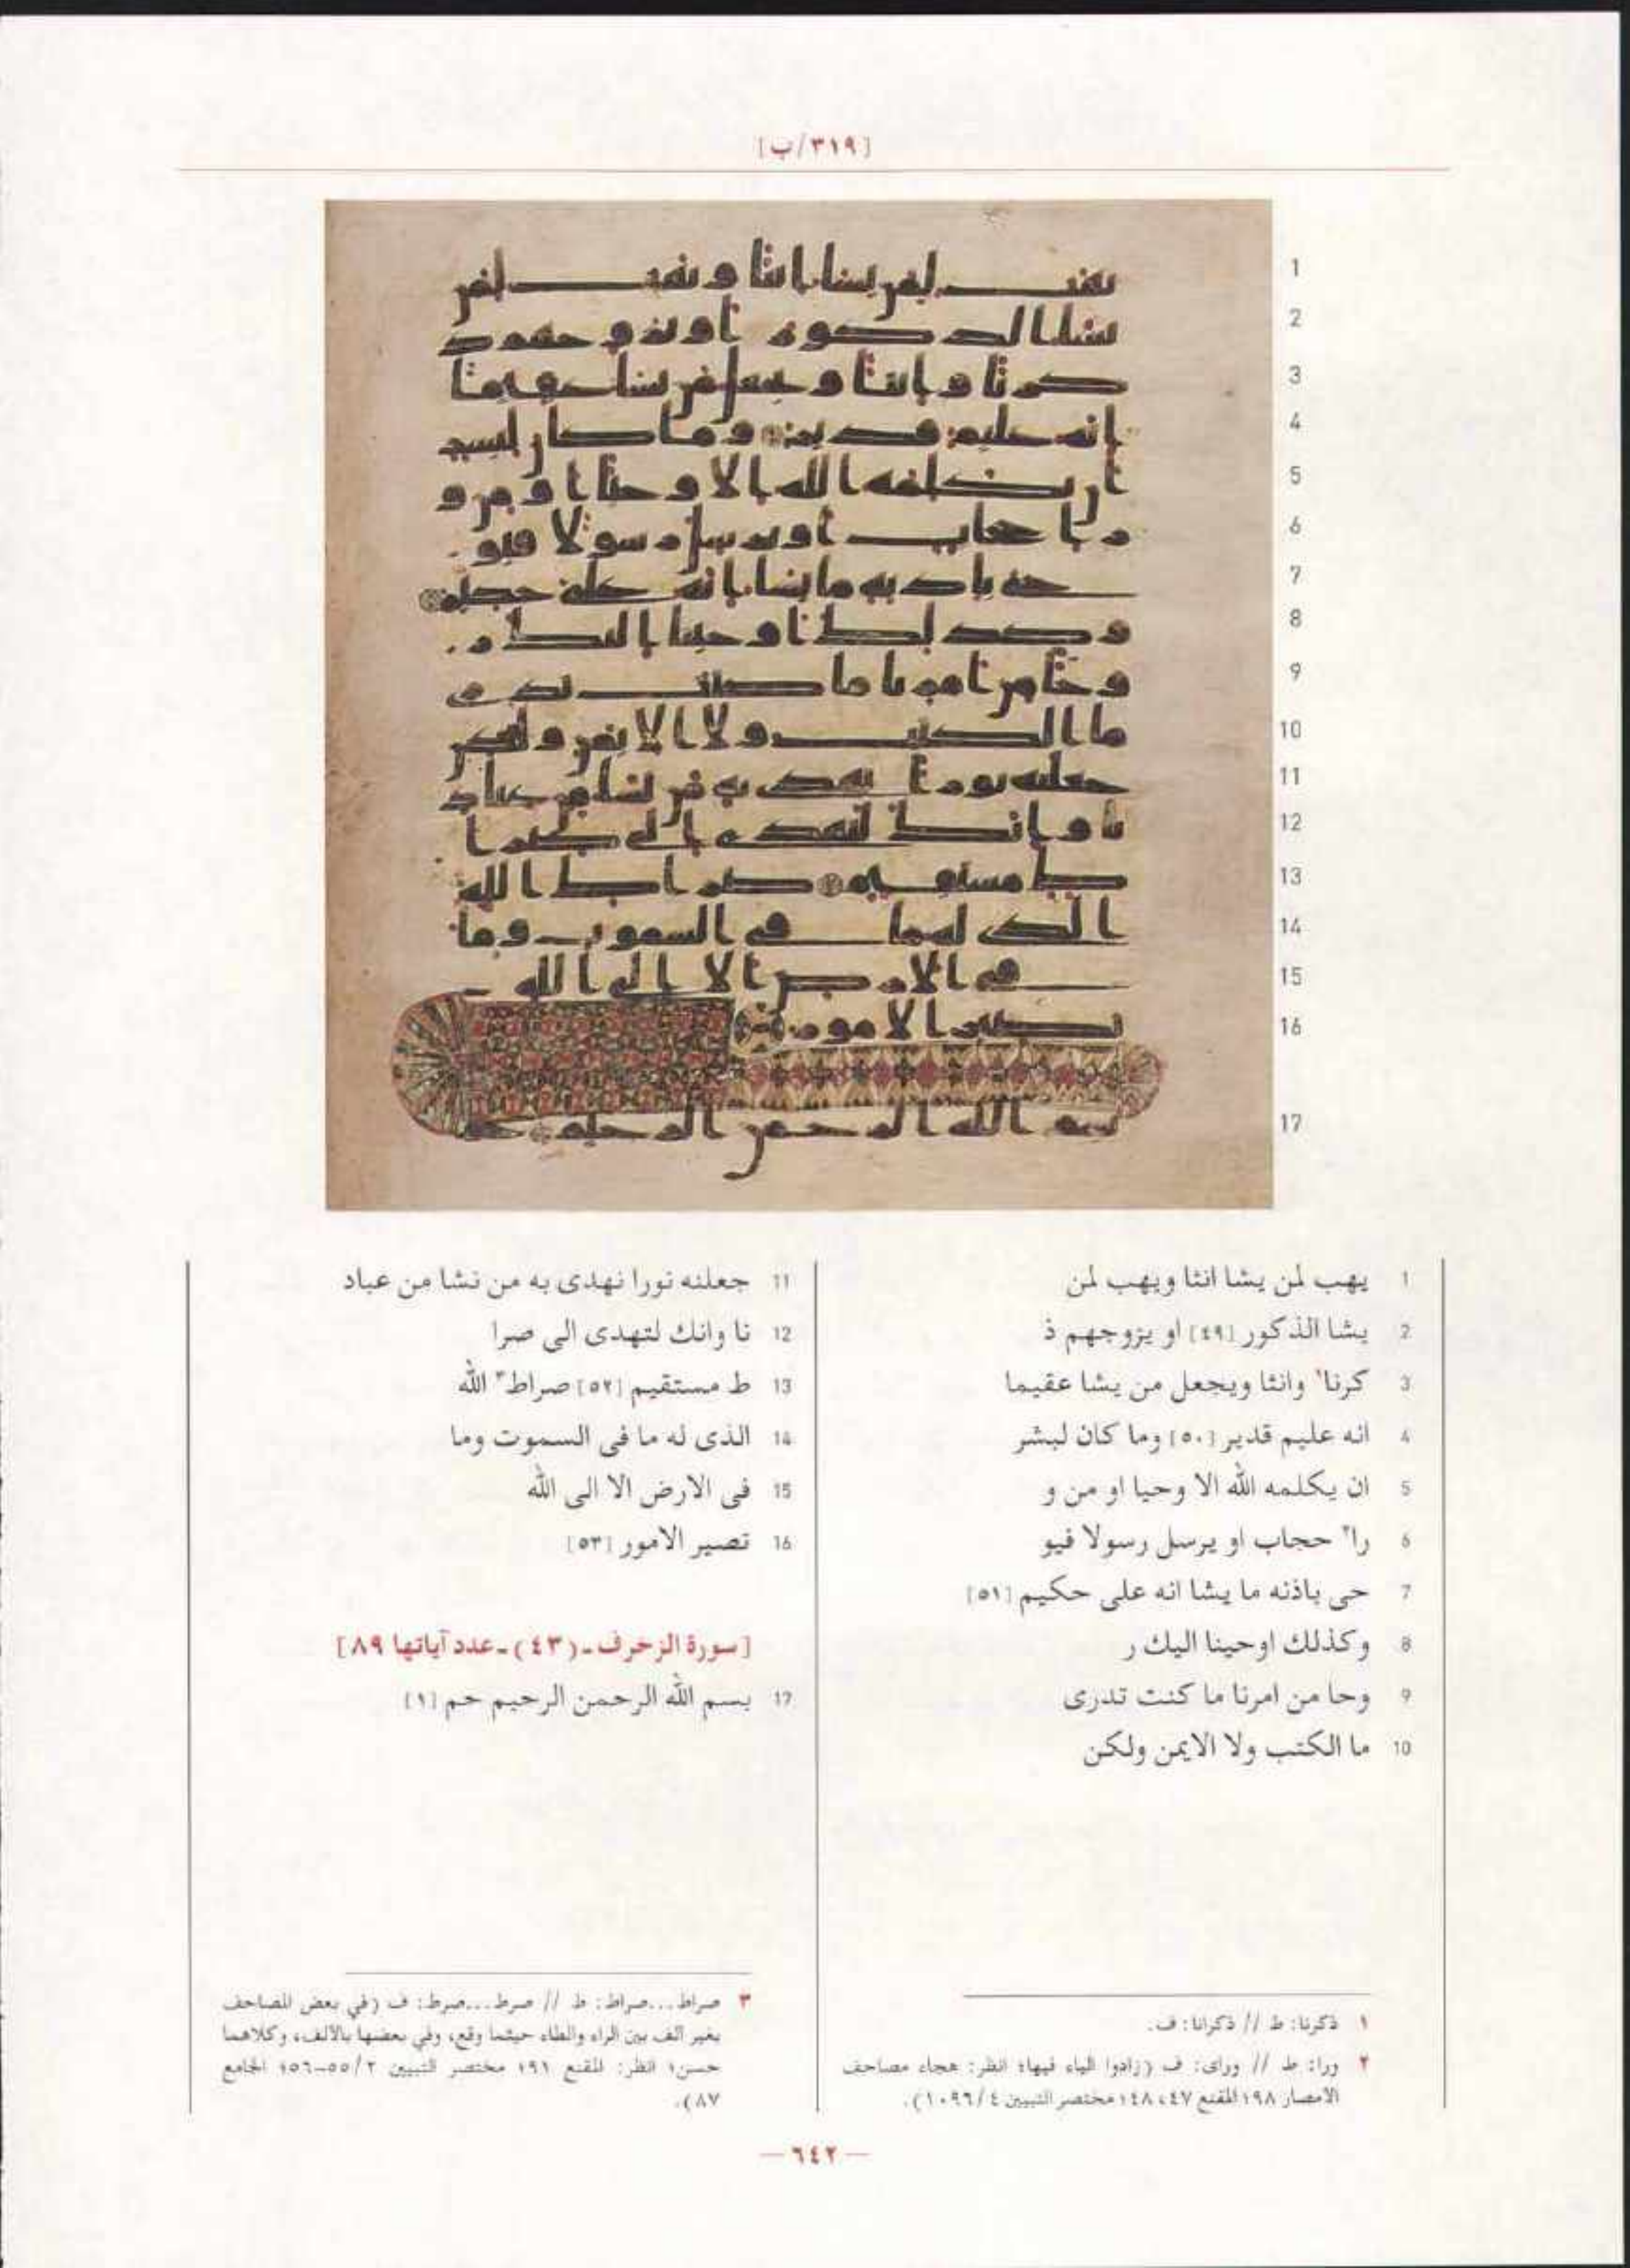 [٣١٩/ب]
1
2
3
4
5
6
7
8
9
10
11
12
13
14
15
16
17
1 يهب لمن يشا انثا ويهب لمن
2 يشا الذكور [٤٩] او يزوجهم ذ
3 كرنا١ وانثا ويجعل من يشا عقيما
4 انه عليم قدير [٥٠] وما كان لبشر
5 ان يكلمه الله الا وحيا او من و
6 را٢ حجاب او يرسل رسولا فيو
7 حى باذنه ما يشا انه على حكيم [٥١]
8 وكذلك اوحينا اليك ر
9 وحا من امرنا ما كنت تدرى
10 ما الكتب ولا الايمن ولكن
11 جعلنه نورا نهدى به من نشا من عباد
12 نا وانك لتهدى الى صرا
13 ط مستقيم [٥٢] صراط٣ الله
14 الذى له ما فى السموت وما
15 فى الارض الا الى الله
16 تصير الامور [٥٣]
[سورة الزخرف ـ (٤٣) ـ عدد آياتها ٨٩]
17 بسم الله الرحمن الرحيم حم [١]
١ ذكرنا: ط // ذكرانا: ف.
٢ ورا: ط // وراى: ف (زادوا الياء فيها؛ انظر: هجاء مصاحف
الامصار ١٩٨؛ المقنع ٤٧، ١٤٨؛ مختصر التبيين ٤/١٠٩٦).
٣ صراط...صراط: ط // صرط...صرط: ف (في بعض المصاحف
بغير ألف بين الراء والطاء حيثما وقع، وفي بعضها بالألف، وكلاهما
حسن؛ انظر: المقنع ١٩١؛ مختصر التبيين ٢/٥٥-٥٦؛ الجامع
٨٧).
— ٦٤٢ —